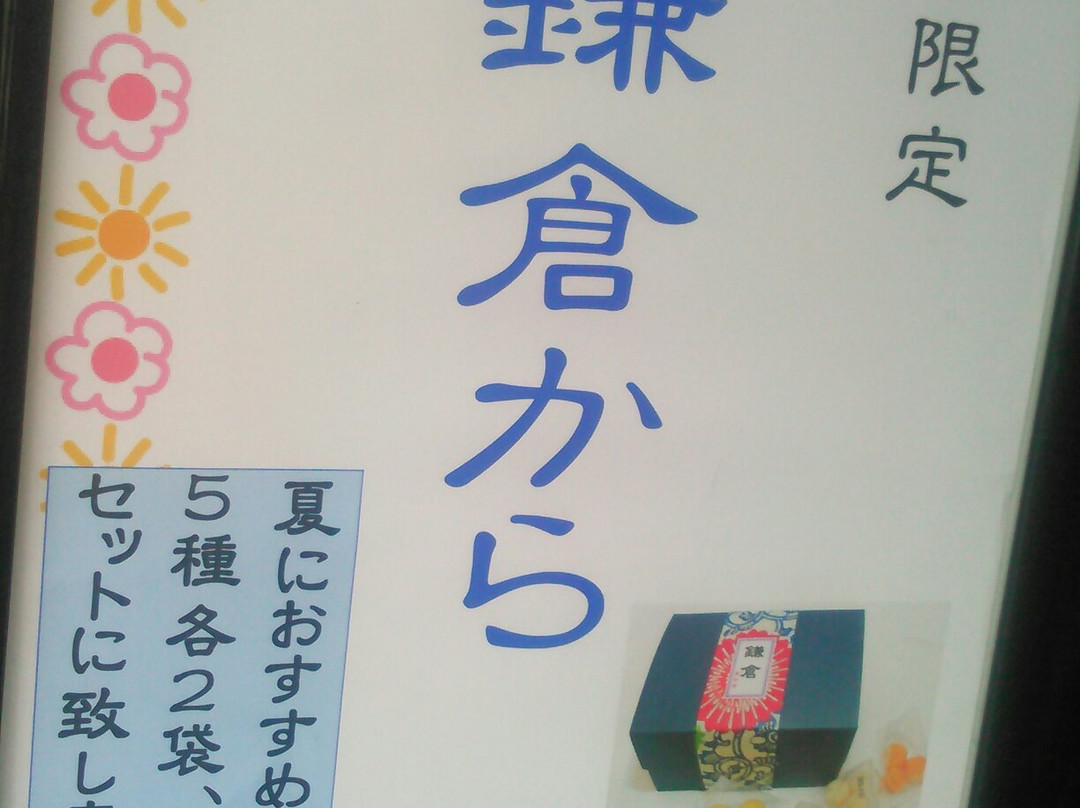 限定
鎌倉から
夏におすすめ
5種各2袋、
セットに致し
鎌倉